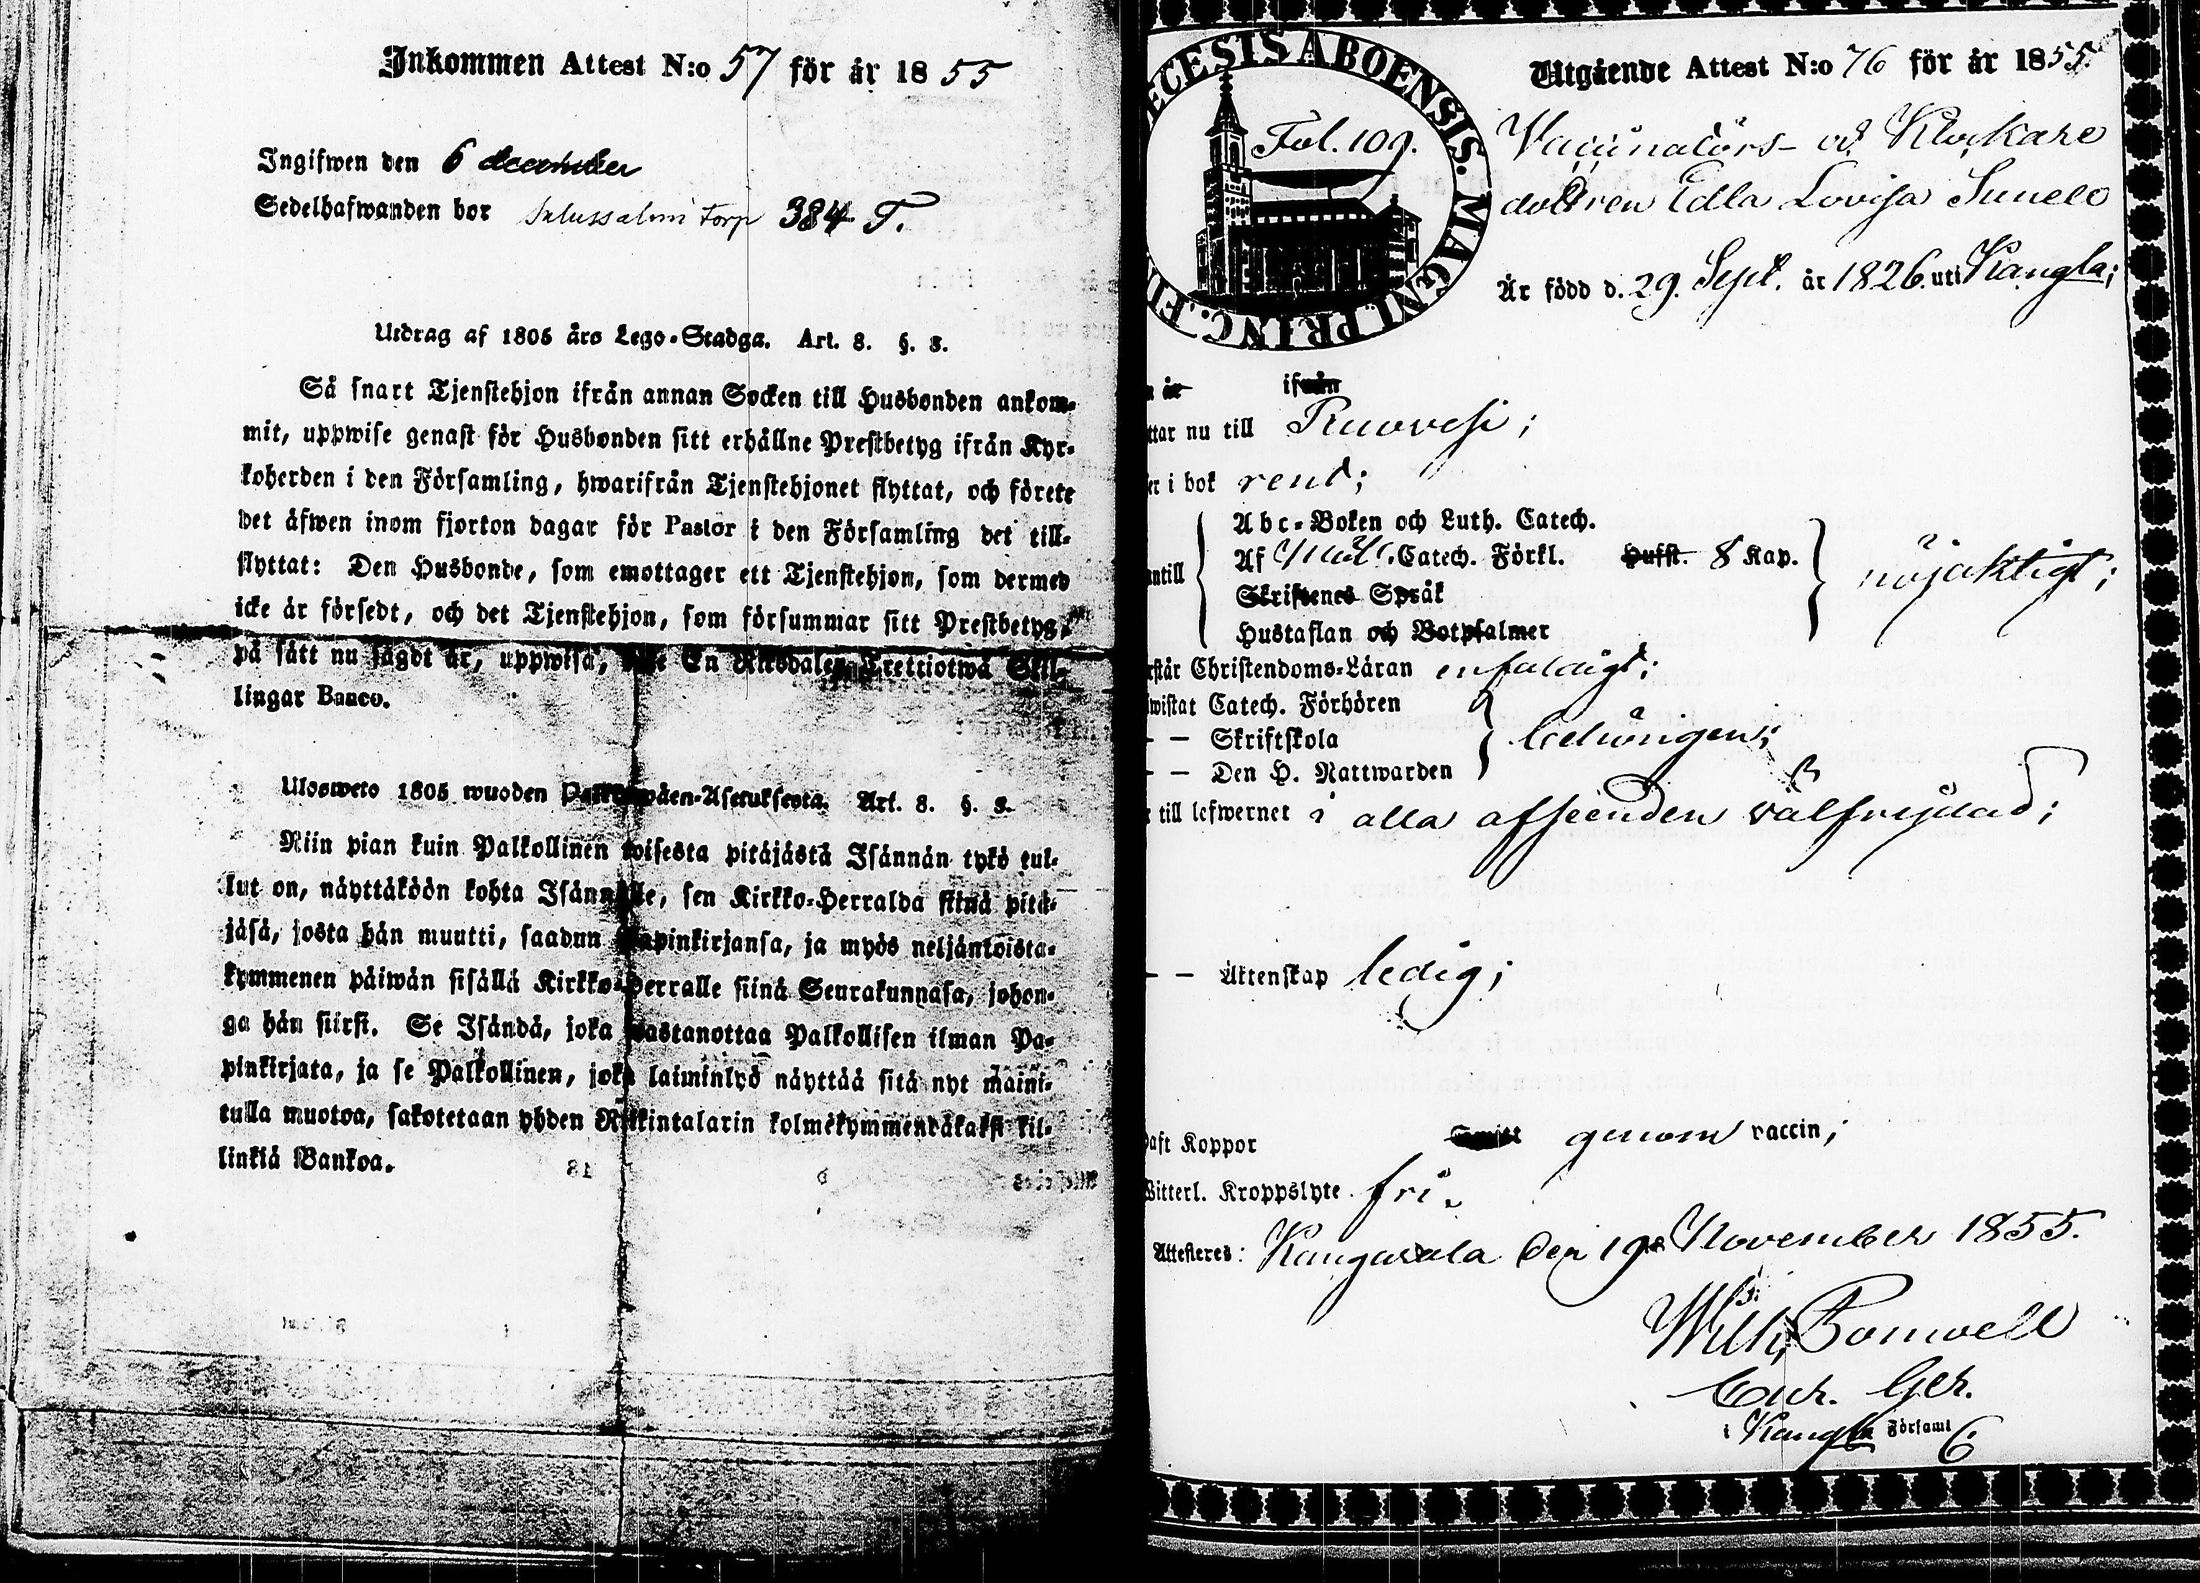 Inkommen Attest N:o 57 för år 1855
Ingifwen den 6 december
Sedelhafwanden bor Salussalmi Torp 384 T.
Utdrag af 1805 års Lego-Stadga. Art. 8. §. 8.
Så snart Tjenstehjon ifrån annan Socken till Husbonden ankom-
mit, uppwise genast för Husbonden sitt erhållne Prestbetyg ifrån Kyr-
koherden i den Församling, hwarifrån Tjenstehjonet flyttat, och förete
det äfwen inom fjorton dagar för Pastor i den Församling det till-
flyttat: Den Husbonde, som emottager ett Tjenstehjon, som dermed
icke är försedt, och det Tjenstehjon, som försummar sitt Prestbetyg,
på sätt nu sagdt är, uppwisa, En Riksdaler Trettiotwå Skil-
lingar Banco.
Ulosweto 1805 wuoden Palkkawäen-Asetuksesta. Art. 8. §. 8.
Niin pian kuin Palkollinen toisesta pitäjästä Isännän tykö tul-
lut on, näyttäköön kohta Isännälle, sen Kirkko-Herralda siinä pitä-
jäsä, josta hän muutti, saadun Papinkirjansa, ja myös neljäntoista-
kymmenen päiwän sisällä Kirkko-Herralle siinä Seurakunnasa, johon-
ga hän siirsi. Se Isändä, joka wastanottaa Palkollisen ilman Pa-
pinkirjata, ja se Palkollinen, joka laiminlyö näyttää sitä nyt maini-
tulla muotoa, sakotetaan yhden Riikintalarin kolmekymmendäkaksi kil-
linkiä Bankoa.
ECESIS ABOENSIS. MAGNI. PRINC. FIN
Fol. 109.
Utgående Attest N:o 76 för år 1855.
Vaccinatörs- och Klockare
dottren Edla Lovisa Sunell
Är född d. 29. Sept. år 1826. uti Kangla;
n år ifrån
ttar nu till Ruovesi;
er i bok rent;
Abc-Boken och Luth. Catech.
Af Catech. Förkl. Hufst. 8 Kap.
antill
Skriftenes Språk
nöjaktigt;
Hustaflan och Botpsalmer
rstår Christendoms-Läran enfaldigt;
wistat Catech. Förhören
— — Skriftskola
behörigen;
— — Den H. Nattwarden
till lefwernet i alla afseenden välfrejdad;
— — Äktenskap ledig;
haft Koppor genom vaccin;
Witterl. Kroppslyte fri.
Attesteres: Kangasala den 19de November 1855.
Wilh. Bonwell
i Kangla Församl